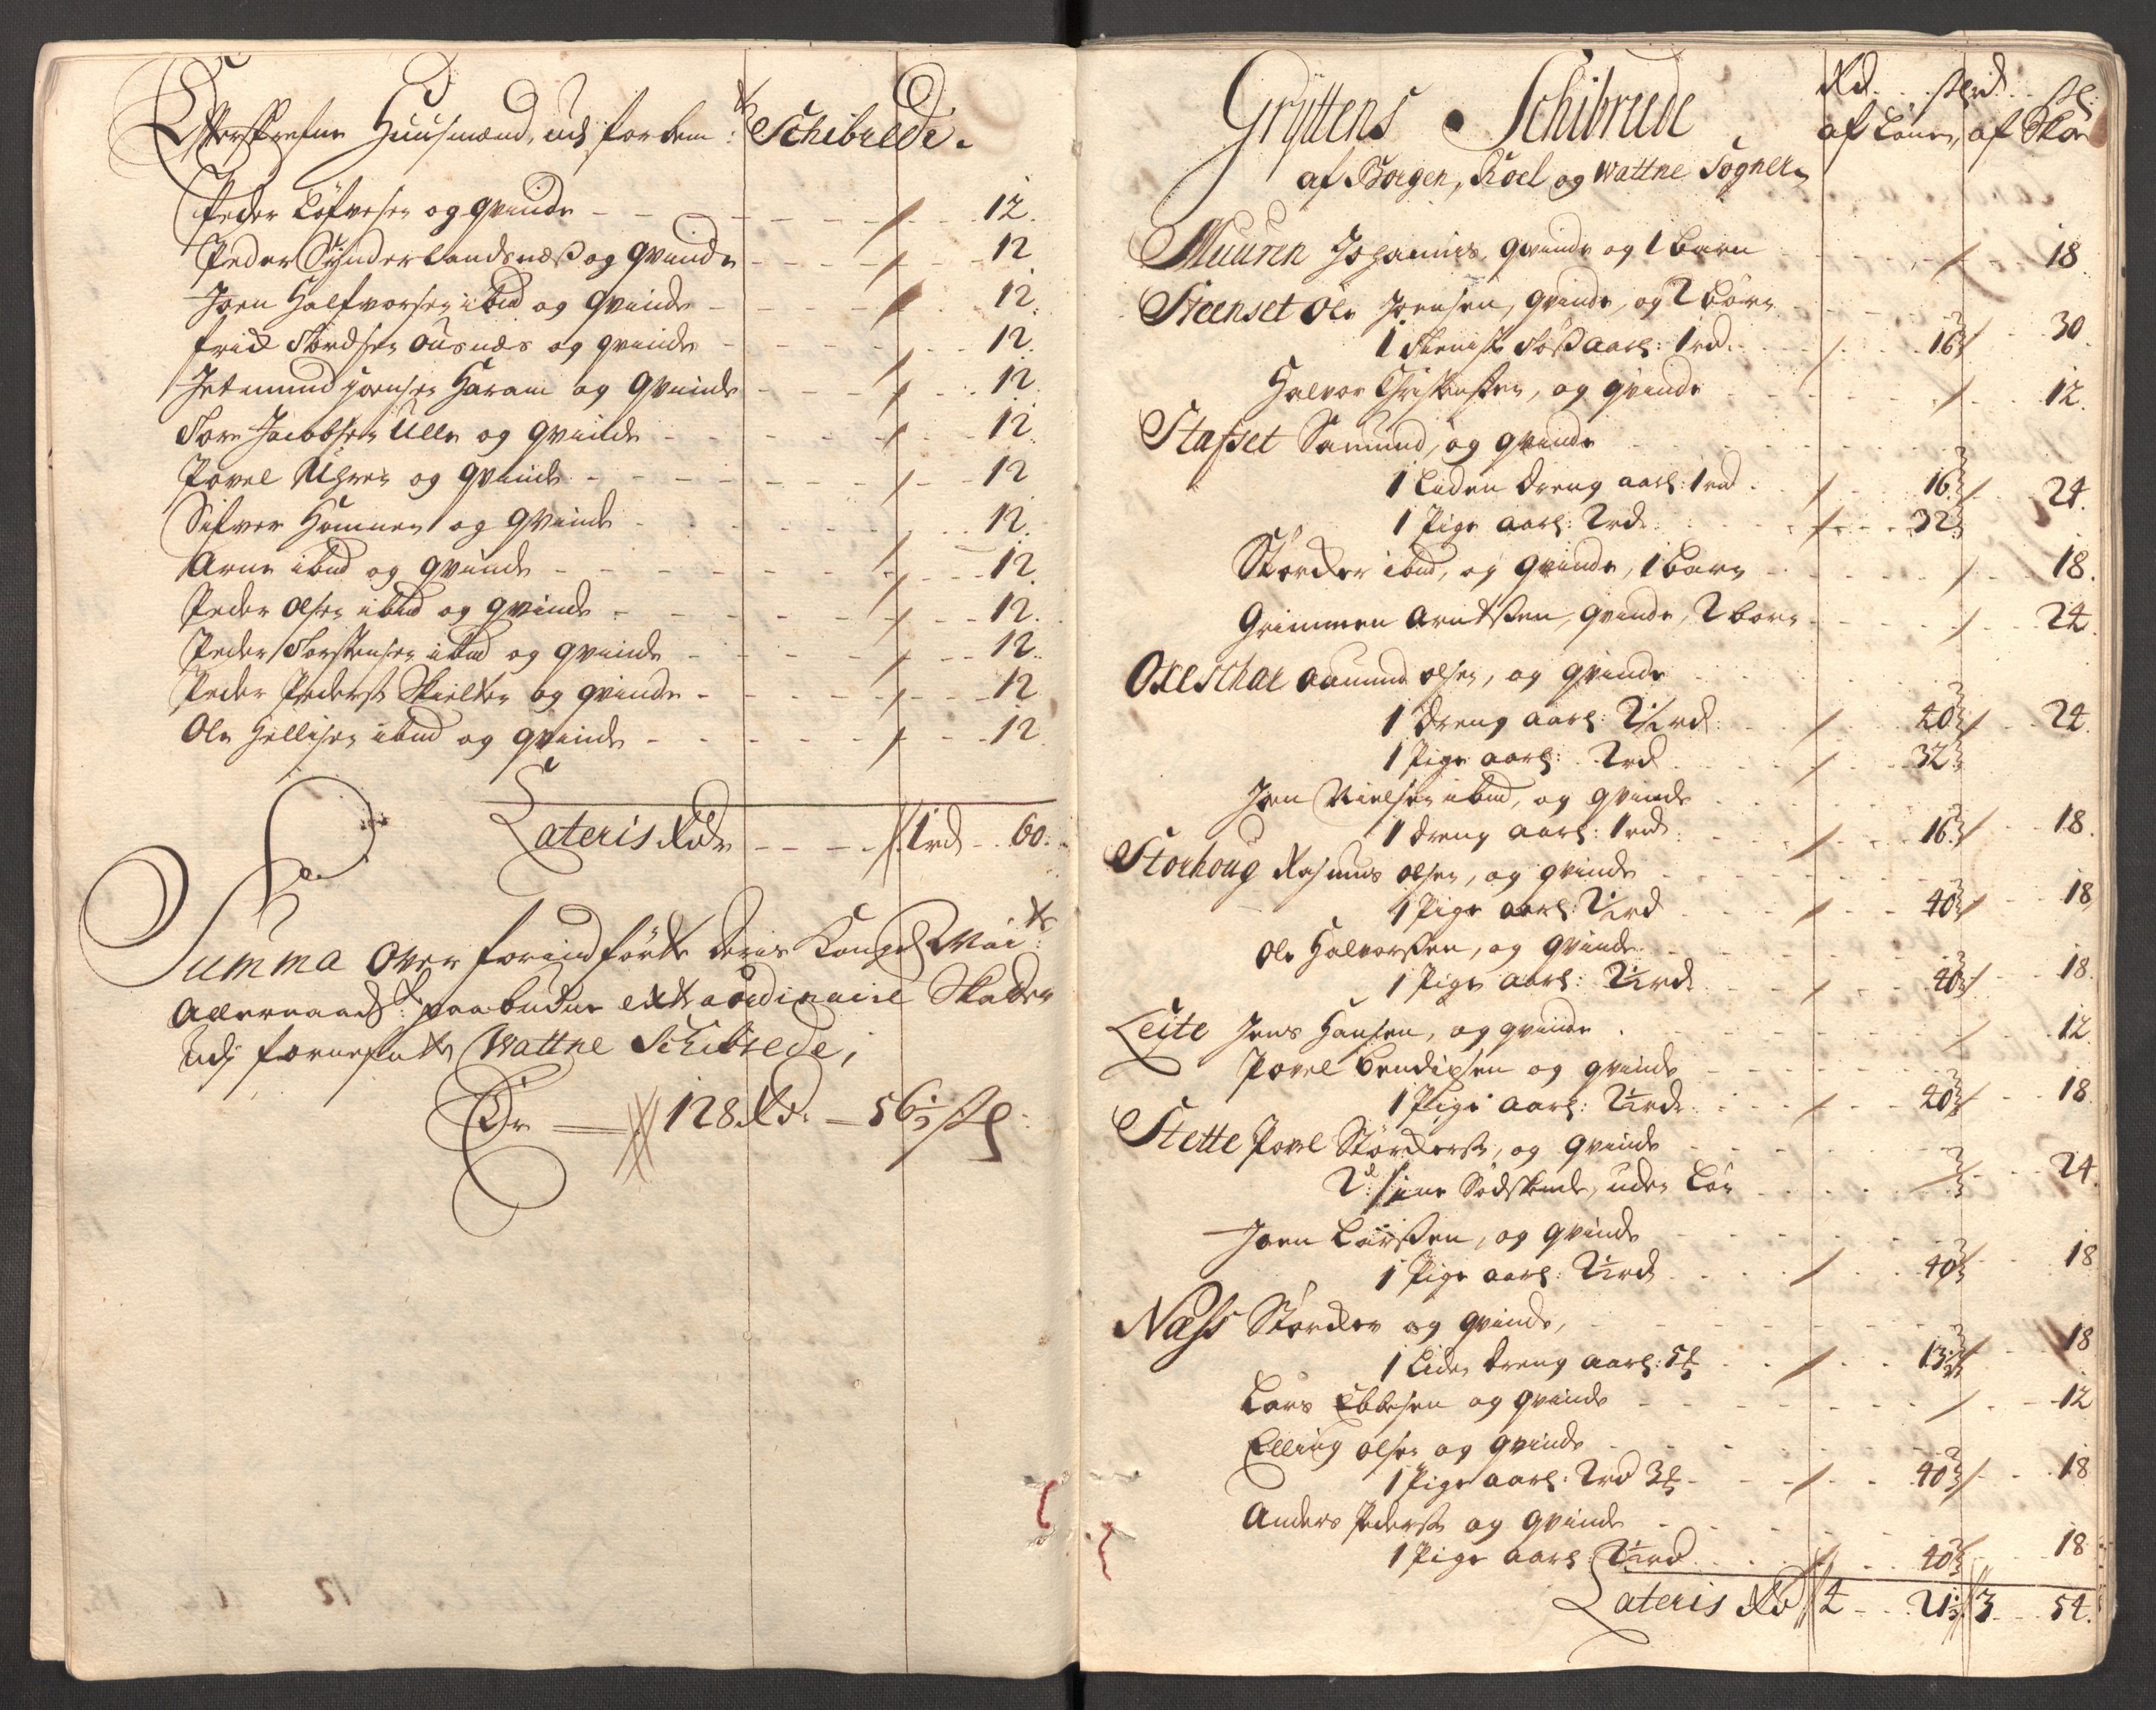 Efterskrefne Huusmænd, udj fordem: Schibrede.
Peder Löfvesen og qvinde - - - 12.
Peder Synderlandsnæs og qvinde - - - 12
Joen Halfvorsen ibid og qvinde - - - 12.
Erich Tordsen Ousnæs og qvinde - - - 12.
Jetmund Joensen Haram og qvinde - - - 12.
Tore Jacobsen Ulle og qvinde - - - 12.
Povel Uhren og qvinde - - - 12
Sifver Hamnen og qvinde - - - 12.
Arne ibid og qvinde - - - 12.
Peder Olsen ibid og qvinde - - - 12.
Peder Torstensen ibid og qvinde - - - 12.
Peder Peders: Skielten og qvinde - - - 12
Ole Hellisen ibid og qvinde - - - 12
Lateris Rdr - - - 1rd - 60.
Summa Over forindförte deris Kongel: Mai:ts
Allernaadst: paabudne extraordinaire Skatter
udj forneste Wattne Schibrede,
Er — 128 Rdr. — 56½ sk:
Gryttens Schibrede
Rd. skl. sk:
af Lönen, af Skoe
af Borgen, Roel og Wattne Sogner
Muuren Johannis, qvinde og 1 barn - - 18
Steenset Ole Joensen, qvinde, og 2 börn
1 Tienist Töß aarl: 1rd. - - 16 - - 30
Halvor Christensen, og qvinde - - 12.
Stafset Samund, og qvinde
1 Liden dreng aarl: 1rd. - - 16 - - 24.
1 Pige aarl: 2rd. - - 32
Störcker ibid, og qvinde, 1 barn - - 18.
Grimmen Arntsen, qvinde, 2 börn - - 24
Oxesthar Aamund Olsen, og qvinde
1 dreng aarl: 2½rd: - - 40 - - 24.
1 Pige aarl: 2rd - - 32
Joen Nielsen ibid, og qvinde
1 dreng aarl: 1rd - - 16 - - 18.
Storhoug Rasmus Olsen, og qvinde
1 Pige aarl: 2½rd - - 40 - - 18
Ole Halvorsen, og qvinde
1 Pige aarl: 2½rd - - 40 - - 18.
Leite Jens Hansen, og qvinde - - 12.
Povel Bendixsen og qvinde
1 Pige aarl: 2½rd. - - 40 - - 18.
Stette Povel Störckers:, og qvinde
2: sine Södskende, uden Lön - - 24.
Joen Larsen, og qvinde
1 Pige aarl: 2½rd - - 40 - - 18
Næss Störcker og qvinde,
1 Liden dreng aarl: 5 - - 13 - - 18
Lars Ebbesen og qvinde - - 12
Elling Olsen og qvinde
1 Pige aarl: 2rd 3 - - 40 - - 18
Anders Peders: og qvinde
1 Pige aarl: 2½rd - - 40 - - 18
Lateris Rd 4 - - 21½ 3 - - 54.